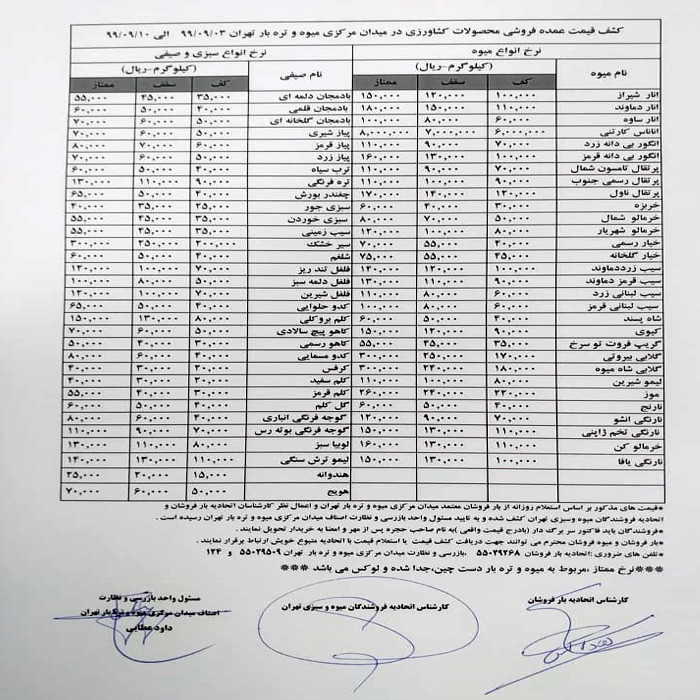 کشف قیمت عمده فروشی محصولات کشاورزی در میدان مرکزی میوه و تره بار تهران ۹۹/۰۹/۰۳ الی ۹۹/۰۹/۱۰
نرخ انواع میوه نرخ انواع سبزی و صیفی
نام میوه (کیلوگرم-ریال) نام صیفی (کیلوگرم-ریال)
کف سقف ممتاز کف سقف ممتاز
انار شیراز ۱۰۰,۰۰۰ ۱۲۰,۰۰۰ ۱۵۰,۰۰۰ بادمجان دلمه ای ۳۵,۰۰۰ ۴۵,۰۰۰ ۵۵,۰۰۰
انار دماوند ۱۱۰,۰۰۰ ۱۵۰,۰۰۰ ۱۸۰,۰۰۰ بادمجان قلمی ۴۰,۰۰۰ ۵۰,۰۰۰ ۶۰,۰۰۰
انار ساوه ۶۰,۰۰۰ ۸۰,۰۰۰ ۱۰۰,۰۰۰ بادمجان گلخانه ای ۵۰,۰۰۰ ۶۰,۰۰۰ ۷۰,۰۰۰
آناناس کارتنی ۶,۰۰۰,۰۰۰ ۷,۰۰۰,۰۰۰ ۸,۰۰۰,۰۰۰ پیاز شیری ۵۰,۰۰۰ ۶۰,۰۰۰ ۷۰,۰۰۰
انگور بی دانه زرد ۷۰,۰۰۰ ۹۰,۰۰۰ ۱۱۰,۰۰۰ پیاز قرمز ۶۰,۰۰۰ ۷۰,۰۰۰ ۸۰,۰۰۰
انگور بی دانه قرمز ۱۰۰,۰۰۰ ۱۳۰,۰۰۰ ۱۶۰,۰۰۰ پیاز زرد ۵۰,۰۰۰ ۶۰,۰۰۰ ۷۰,۰۰۰
پرتقال تامسون شمال ۷۰,۰۰۰ ۹۰,۰۰۰ ۱۱۰,۰۰۰ ترب سیاه ۴۰,۰۰۰ ۵۰,۰۰۰ ۶۰,۰۰۰
پرتقال رسمی جنوب ۷۰,۰۰۰ ۹۰,۰۰۰ ۱۱۰,۰۰۰ تره فرنگی ۹۰,۰۰۰ ۱۱۰,۰۰۰ ۱۳۰,۰۰۰
پرتقال ناول ۱۲۰,۰۰۰ ۱۴۰,۰۰۰ ۱۷۰,۰۰۰ چغندر بورش ۴۰,۰۰۰ ۵۰,۰۰۰ ۶۵,۰۰۰
خربزه ۳۰,۰۰۰ ۴۰,۰۰۰ ۶۰,۰۰۰ سبزی جور ۲۵,۰۰۰ ۳۵,۰۰۰ ۴۰,۰۰۰
خرمالو شمال ۵۰,۰۰۰ ۷۰,۰۰۰ ۸۰,۰۰۰ سبزی خوردن ۳۵,۰۰۰ ۴۵,۰۰۰ ۵۵,۰۰۰
خرمالو شهریار ۸۰,۰۰۰ ۱۰۰,۰۰۰ ۱۲۰,۰۰۰ سیب زمینی ۳۵,۰۰۰ ۴۵,۰۰۰ ۵۵,۰۰۰
خیار رسمی ۴۰,۰۰۰ ۵۵,۰۰۰ ۷۰,۰۰۰ سیر خشک ۲۰۰,۰۰۰ ۲۵۰,۰۰۰ ۳۰۰,۰۰۰
خیار گلخانه ۴۵,۰۰۰ ۵۵,۰۰۰ ۷۵,۰۰۰ شلغم ۴۰,۰۰۰ ۵۰,۰۰۰ ۶۰,۰۰۰
سیب زرددماوند ۱۰۰,۰۰۰ ۱۲۰,۰۰۰ ۱۴۰,۰۰۰ فلفل تند ریز ۷۰,۰۰۰ ۱۰۰,۰۰۰ ۱۲۰,۰۰۰
سیب قرمز دماوند ۹۰,۰۰۰ ۱۱۰,۰۰۰ ۱۳۰,۰۰۰ فلفل دلمه سبز ۵۰,۰۰۰ ۸۰,۰۰۰ ۱۰۰,۰۰۰
سیب لبنانی زرد ۶۰,۰۰۰ ۸۰,۰۰۰ ۱۱۰,۰۰۰ فلفل شیرین ۷۰,۰۰۰ ۱۰۰,۰۰۰ ۱۲۰,۰۰۰
سیب لبنانی قرمز ۶۰,۰۰۰ ۸۰,۰۰۰ ۱۰۰,۰۰۰ کدو حلوایی ۴۰,۰۰۰ ۵۰,۰۰۰ ۶۵,۰۰۰
شاه پسند ۴۰,۰۰۰ ۵۰,۰۰۰ ۶۰,۰۰۰ کلم بروکلی ۸۰,۰۰۰ ۱۳۰,۰۰۰ ۱۵۰,۰۰۰
کیوی ۹۰,۰۰۰ ۱۲۰,۰۰۰ ۱۵۰,۰۰۰ کاهو پیچ سالادی ۵۰,۰۰۰ ۶۰,۰۰۰ ۷۰,۰۰۰
گریپ فروت تو سرخ ۳۵,۰۰۰ ۴۵,۰۰۰ ۵۵,۰۰۰ کاهو رسمی ۳۰,۰۰۰ ۴۰,۰۰۰ ۵۰,۰۰۰
گلابی بیروتی ۱۷۰,۰۰۰ ۲۵۰,۰۰۰ ۳۰۰,۰۰۰ کدو مسمایی ۴۰,۰۰۰ ۶۰,۰۰۰ ۸۰,۰۰۰
گلابی شاه میوه ۱۸۰,۰۰۰ ۲۴۰,۰۰۰ ۳۰۰,۰۰۰ کرفس ۲۰,۰۰۰ ۳۰,۰۰۰ ۴۰,۰۰۰
لیمو شیرین ۸۰,۰۰۰ ۱۰۰,۰۰۰ ۱۱۰,۰۰۰ کلم سفید ۲۰,۰۰۰ ۳۰,۰۰۰ ۴۰,۰۰۰
موز ۲۲۰,۰۰۰ ۲۴۰,۰۰۰ ۲۶۰,۰۰۰ کلم قرمز ۳۰,۰۰۰ ۴۰,۰۰۰ ۵۵,۰۰۰
نارنج ۴۰,۰۰۰ ۵۰,۰۰۰ ۶۰,۰۰۰ گل کلم ۴۰,۰۰۰ ۵۰,۰۰۰ ۶۰,۰۰۰
نارنگی انشو ۷۰,۰۰۰ ۹۰,۰۰۰ ۱۲۰,۰۰۰ گوجه فرنگی انباری ۴۰,۰۰۰ ۶۰,۰۰۰ ۸۰,۰۰۰
نارنگی تخم ژاپنی ۱۱۰,۰۰۰ ۱۳۰,۰۰۰ ۱۵۰,۰۰۰ گوجه فرنگی بوته رس ۷۰,۰۰۰ ۹۰,۰۰۰ ۱۱۰,۰۰۰
خرمالو کن ۱۱۰,۰۰۰ ۱۳۰,۰۰۰ ۱۶۰,۰۰۰ لوبیا سبز ۸۰,۰۰۰ ۱۱۰,۰۰۰ ۱۳۰,۰۰۰
نارنگی یافا ۱۰۰,۰۰۰ ۱۳۰,۰۰۰ ۱۵۰,۰۰۰ لیمو ترش سنگی ۱۱۰,۰۰۰ ۱۳۰,۰۰۰ ۱۴۰,۰۰۰
هندوانه ۱۵,۰۰۰ ۲۰,۰۰۰ ۲۵,۰۰۰
هویج ۵۰,۰۰۰ ۶۰,۰۰۰ ۷۰,۰۰۰
*قیمت های مذکور بر اساس استعلام روزانه از بار فروشان معتمد میدان مرکزی میوه و تره بار تهران و اعمال نظر کارشناسان اتحادیه بار فروشان و
اتحادیه فروشندگان میوه وسبزی تهران کشف شده و به تایید مسئول واحد بازرسی و نظارت اصناف میدان مرکزی میوه و تره بار تهران رسیده است .
*فروشندگان باید فاکتور سر برگ دار (بادرج قیمت واقعی )به نام صاحب حجره پس از مهر و امضا به خریدار تحویل نمایند .
*بار فروشان و میوه فروشان محترم می توانند جهت دریافت کشف قیمت یا استعلام قیمت با اتحادیه متبوع خویش ارتباط برقرار نمایند .
*تلفن های ضروری :اتحادیه بار فروشان ۵۵۰۲۹۲۶۸ ,بازرسی و نظارت میدان مرکزی میوه و تره بار تهران ۵۵۰۲۹۵۰۹ و ۱۲۴
***نرخ ممتاز ,مربوط به میوه و تره بار دست چین,جدا شده و لوکس می باشد ***
کارشناس اتحادیه بار فروشان
کارشناس اتحادیه فروشندگان میوه و سبزی تهران
مسئول واحد بازرسی و نظارت
اصناف میدان مرکزی میوه و تره بار تهران
داود عطایی